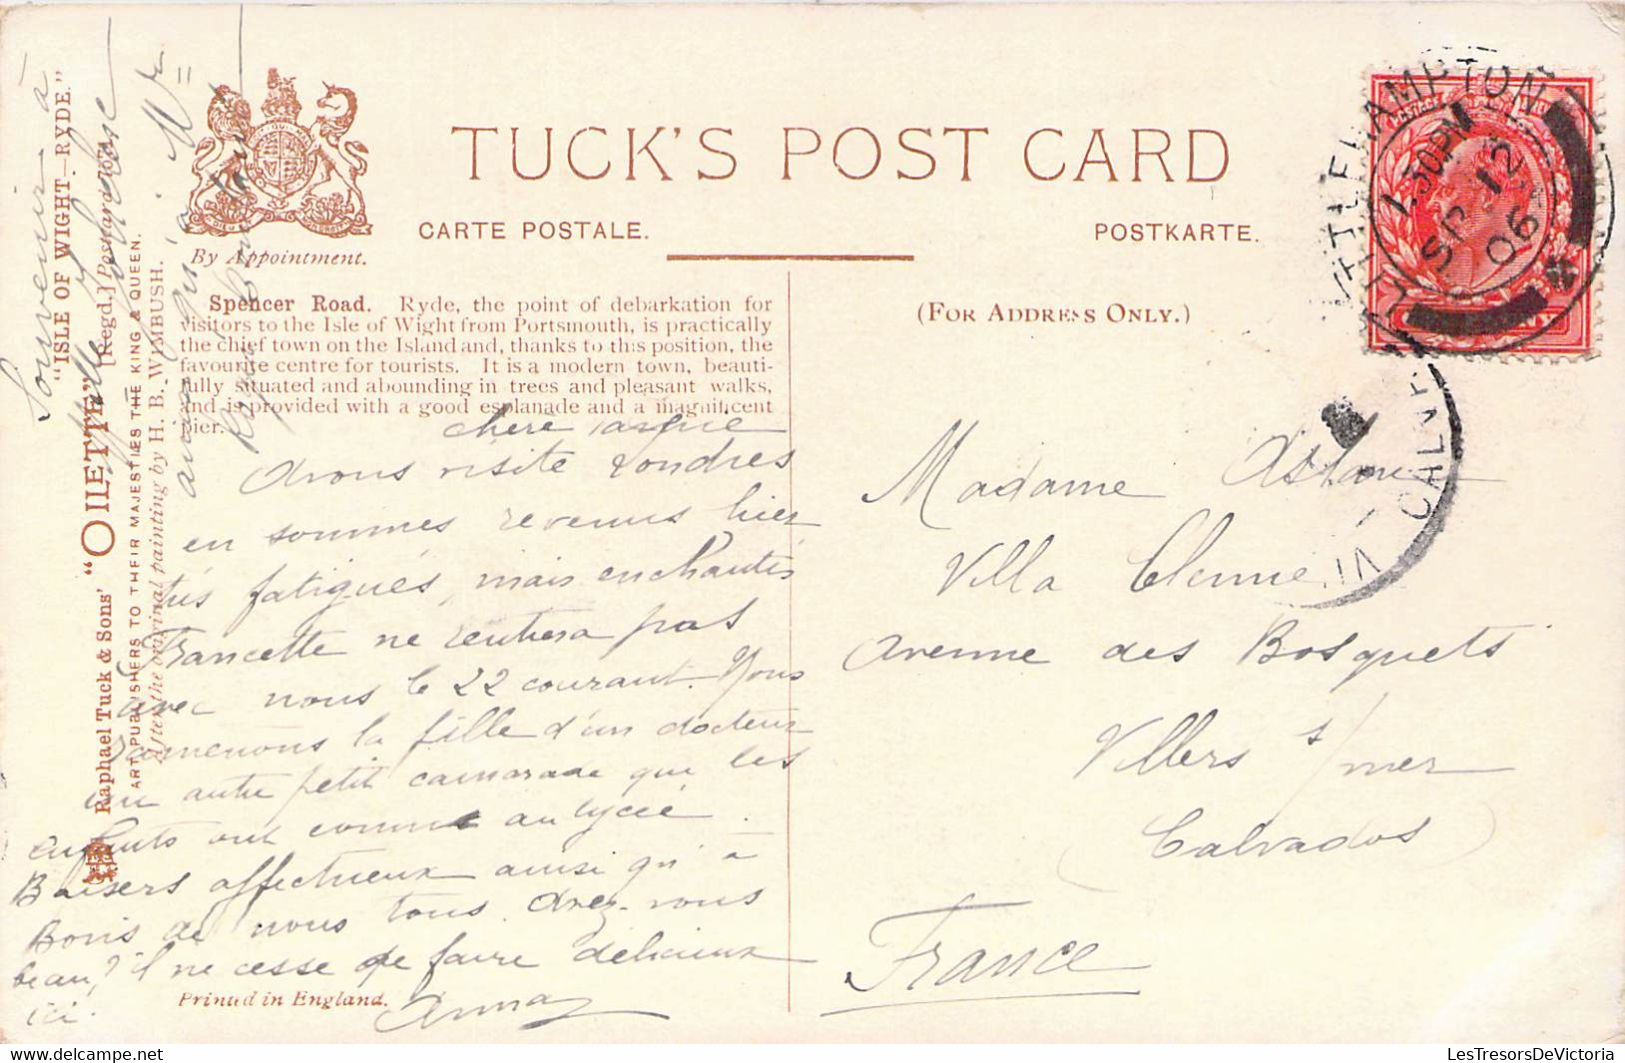 TUCK'S POST CARD
CARTE POSTALE.
POSTKARTE.
By Appointment.
(FOR ADDRESS ONLY.)
Spencer Road. Ryde, the point of debarkation for
visitors to the Isle of Wight from Portsmouth, is practically
the chief town on the Island and, thanks to this position, the
favourite centre for tourists. It is a modern town, beauti-
fully situated and abounding in trees and pleasant walks,
and is provided with a good esplanade and a magnificent
pier.
chère amie
Avons visité Londres
en sommes revenus hier
très fatigués, mais enchantés
Francette ne rentrera pas
avec nous le 22 courant. Nous
ramenons la fille d'un docteur
un autre petit camarade que les
enfants ont connu au lycée.
Baisers affectueux ainsi qu'à
Boris de nous tous. Avez-vous
beau? il ne cesse de faire délicieux
ici.
Anna
Printed in England.
Souvenir à
Raphael Tuck & Sons' "OILETTE" [Regd.] Postcard 1
"ISLE OF WIGHT.—RYDE."
ART PUBLISHERS TO THEIR MAJESTIES THE KING & QUEEN.
After the original painting by H. B. WIMBUSH.
Madame
Villa
Avenue des Bosquets
Villers s/mer
Calvados
France
LITTLEHAMPTON
1.30PM
SP 12
06
CALV
LesTresorsDeVictoria
https://www.delcampe.net